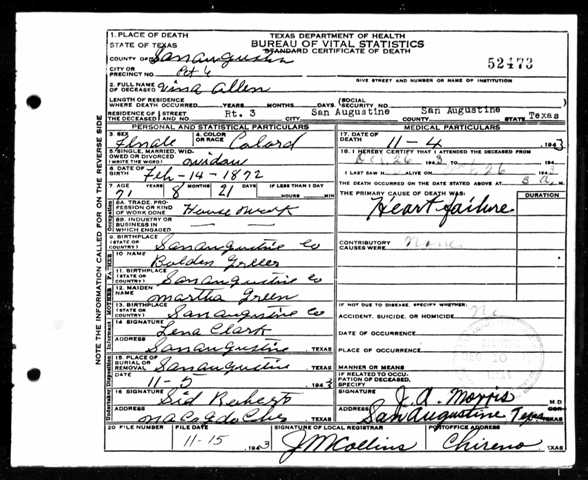 NOTE THE INFORMATION CALLED FOR ON THE REVERSE SIDE
TEXAS DEPARTMENT OF HEALTH
BUREAU OF VITAL STATISTICS
STANDARD CERTIFICATE OF DEATH
52473
1. PLACE OF DEATH
STATE OF TEXAS
COUNTY OF San Augustin
CITY OR PRECINCT NO. Pct 6
GIVE STREET AND NUMBER OR NAME OF INSTITUTION
2. FULL NAME OF DECEASED Vina Allen
LENGTH OF RESIDENCE WHERE DEATH OCCURRED YEARS MONTHS DAYS (SOCIAL SECURITY NO.
RESIDENCE OF THE DECEASED STREET AND NO. Rt. 3 CITY San Augustine COUNTY San Augustine STATE Texas
PERSONAL AND STATISTICAL PARTICULARS
3. SEX Female 4. COLOR OR RACE Colord
5. SINGLE, MARRIED, WIDOWED OR DIVORCED (WRITE THE WORD) widow
6. DATE OF BIRTH Feb-14-1872
7. AGE 71 YEARS 8 MONTHS 21 DAYS IF LESS THAN 1 DAY HOURS MIN
8A. TRADE, PROFESSION OR KIND OF WORK DONE House work
8B. INDUSTRY OR BUSINESS IN WHICH ENGAGED
9. BIRTHPLACE (STATE OR COUNTRY) San Augustine Co
FATHER
10 NAME Bolden
11. BIRTHPLACE (STATE OR COUNTRY) San Augustine Co
MOTHER
12. MAIDEN NAME Martha Green
13. BIRTHPLACE (STATE OR COUNTRY) San Augustine Co
14 SIGNATURE Lena Clark
ADDRESS San Augustine TEXAS
15. PLACE OF BURIAL OR REMOVAL San Augustine TEXAS
DATE 11-5 1943
16 SIGNATURE Sid Roberts
ADDRESS Nacogdoches TEXAS
MEDICAL PARTICULARS
17. DATE OF DEATH 11-4 1943
18. I HEREBY CERTIFY THAT I ATTENDED THE DECEASED FROM
Oct 26 1943 TO
I LAST SAW H ALIVE ON 26 194
THE DEATH OCCURRED ON THE DATE STATED ABOVE AT
THE PRIMARY CAUSE OF DEATH WAS: DURATION
Heart failure
CONTRIBUTORY CAUSES WERE None
IF NOT DUE TO DISEASE, SPECIFY WHETHER:
ACCIDENT, SUICIDE, OR HOMICIDE No
DATE OF OCCURRENCE
PLACE OF OCCURRENCE
MANNER OR MEANS
IF RELATED TO OCCUPATION OF DECEASED, SPECIFY
SIGNATURE J. A. Morris M.D.
ADDRESS San Augustine, Texas TEXAS
20 FILE NUMBER FILE DATE 11-15 1943 SIGNATURE OF LOCAL REGISTRAR J M Collins POSTOFFICE ADDRESS Chireno TEXAS